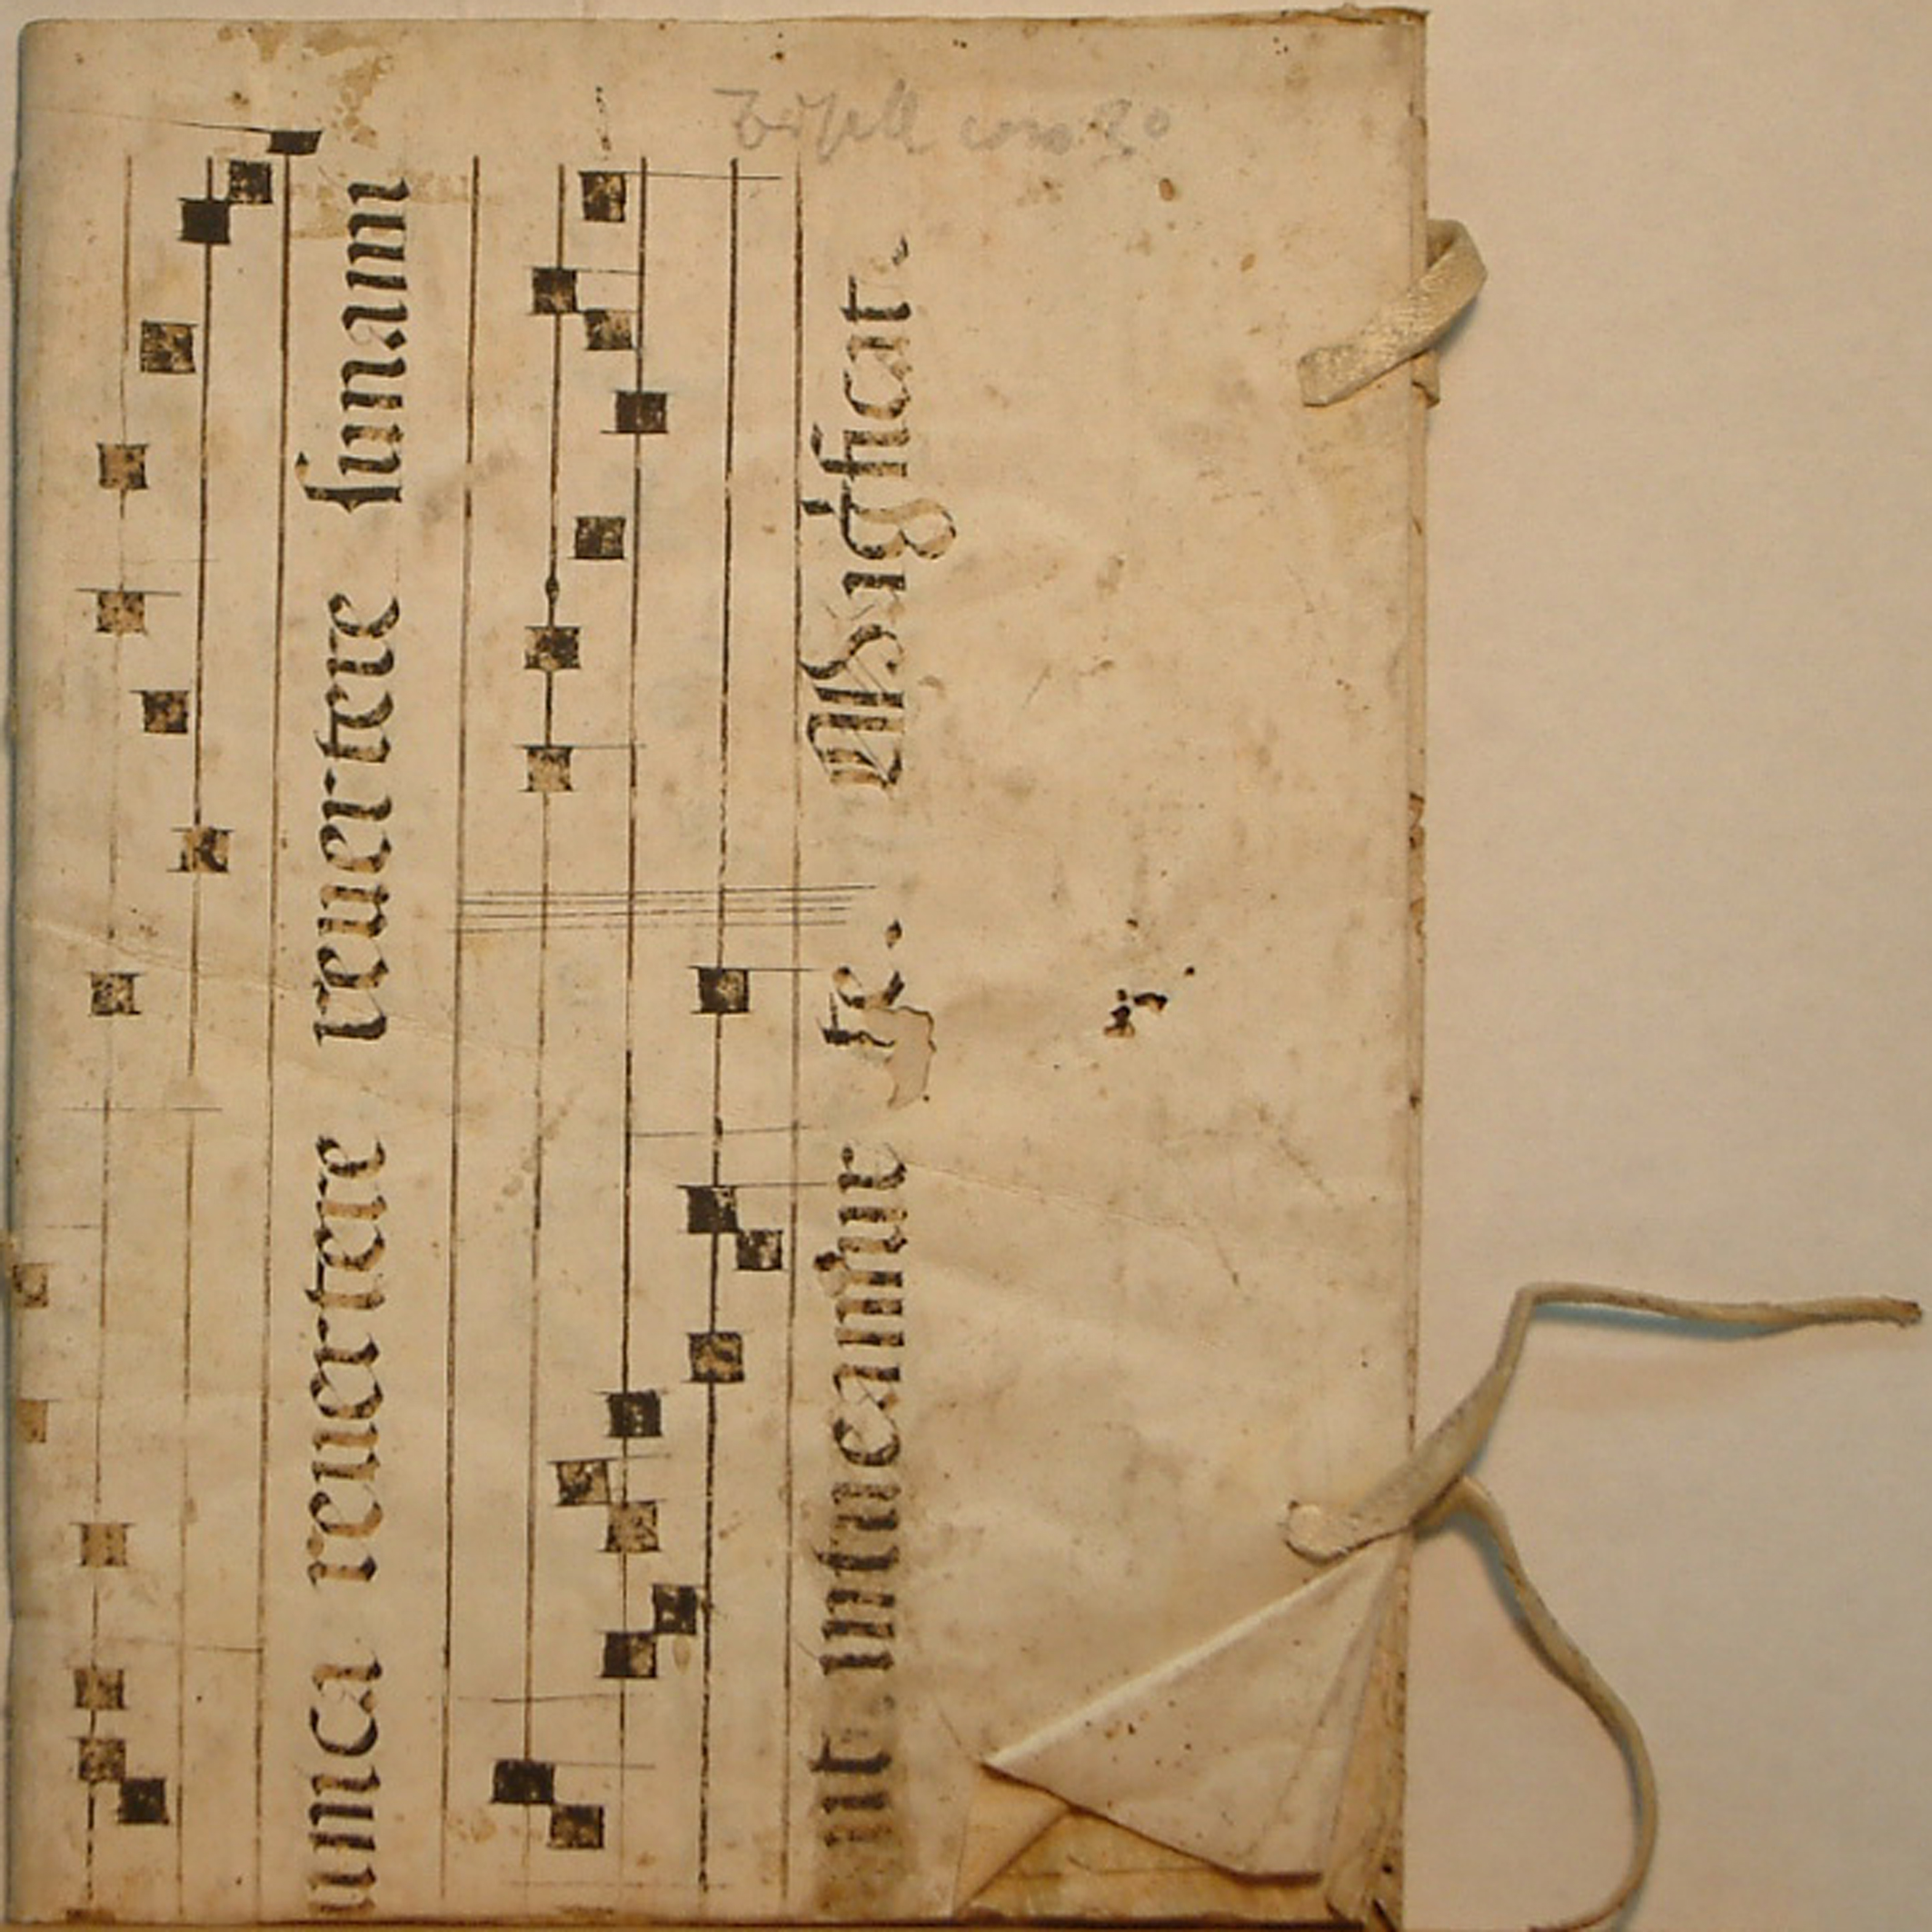 unica reuertere reuertere sunami
ut intueamur te. Magnificat.